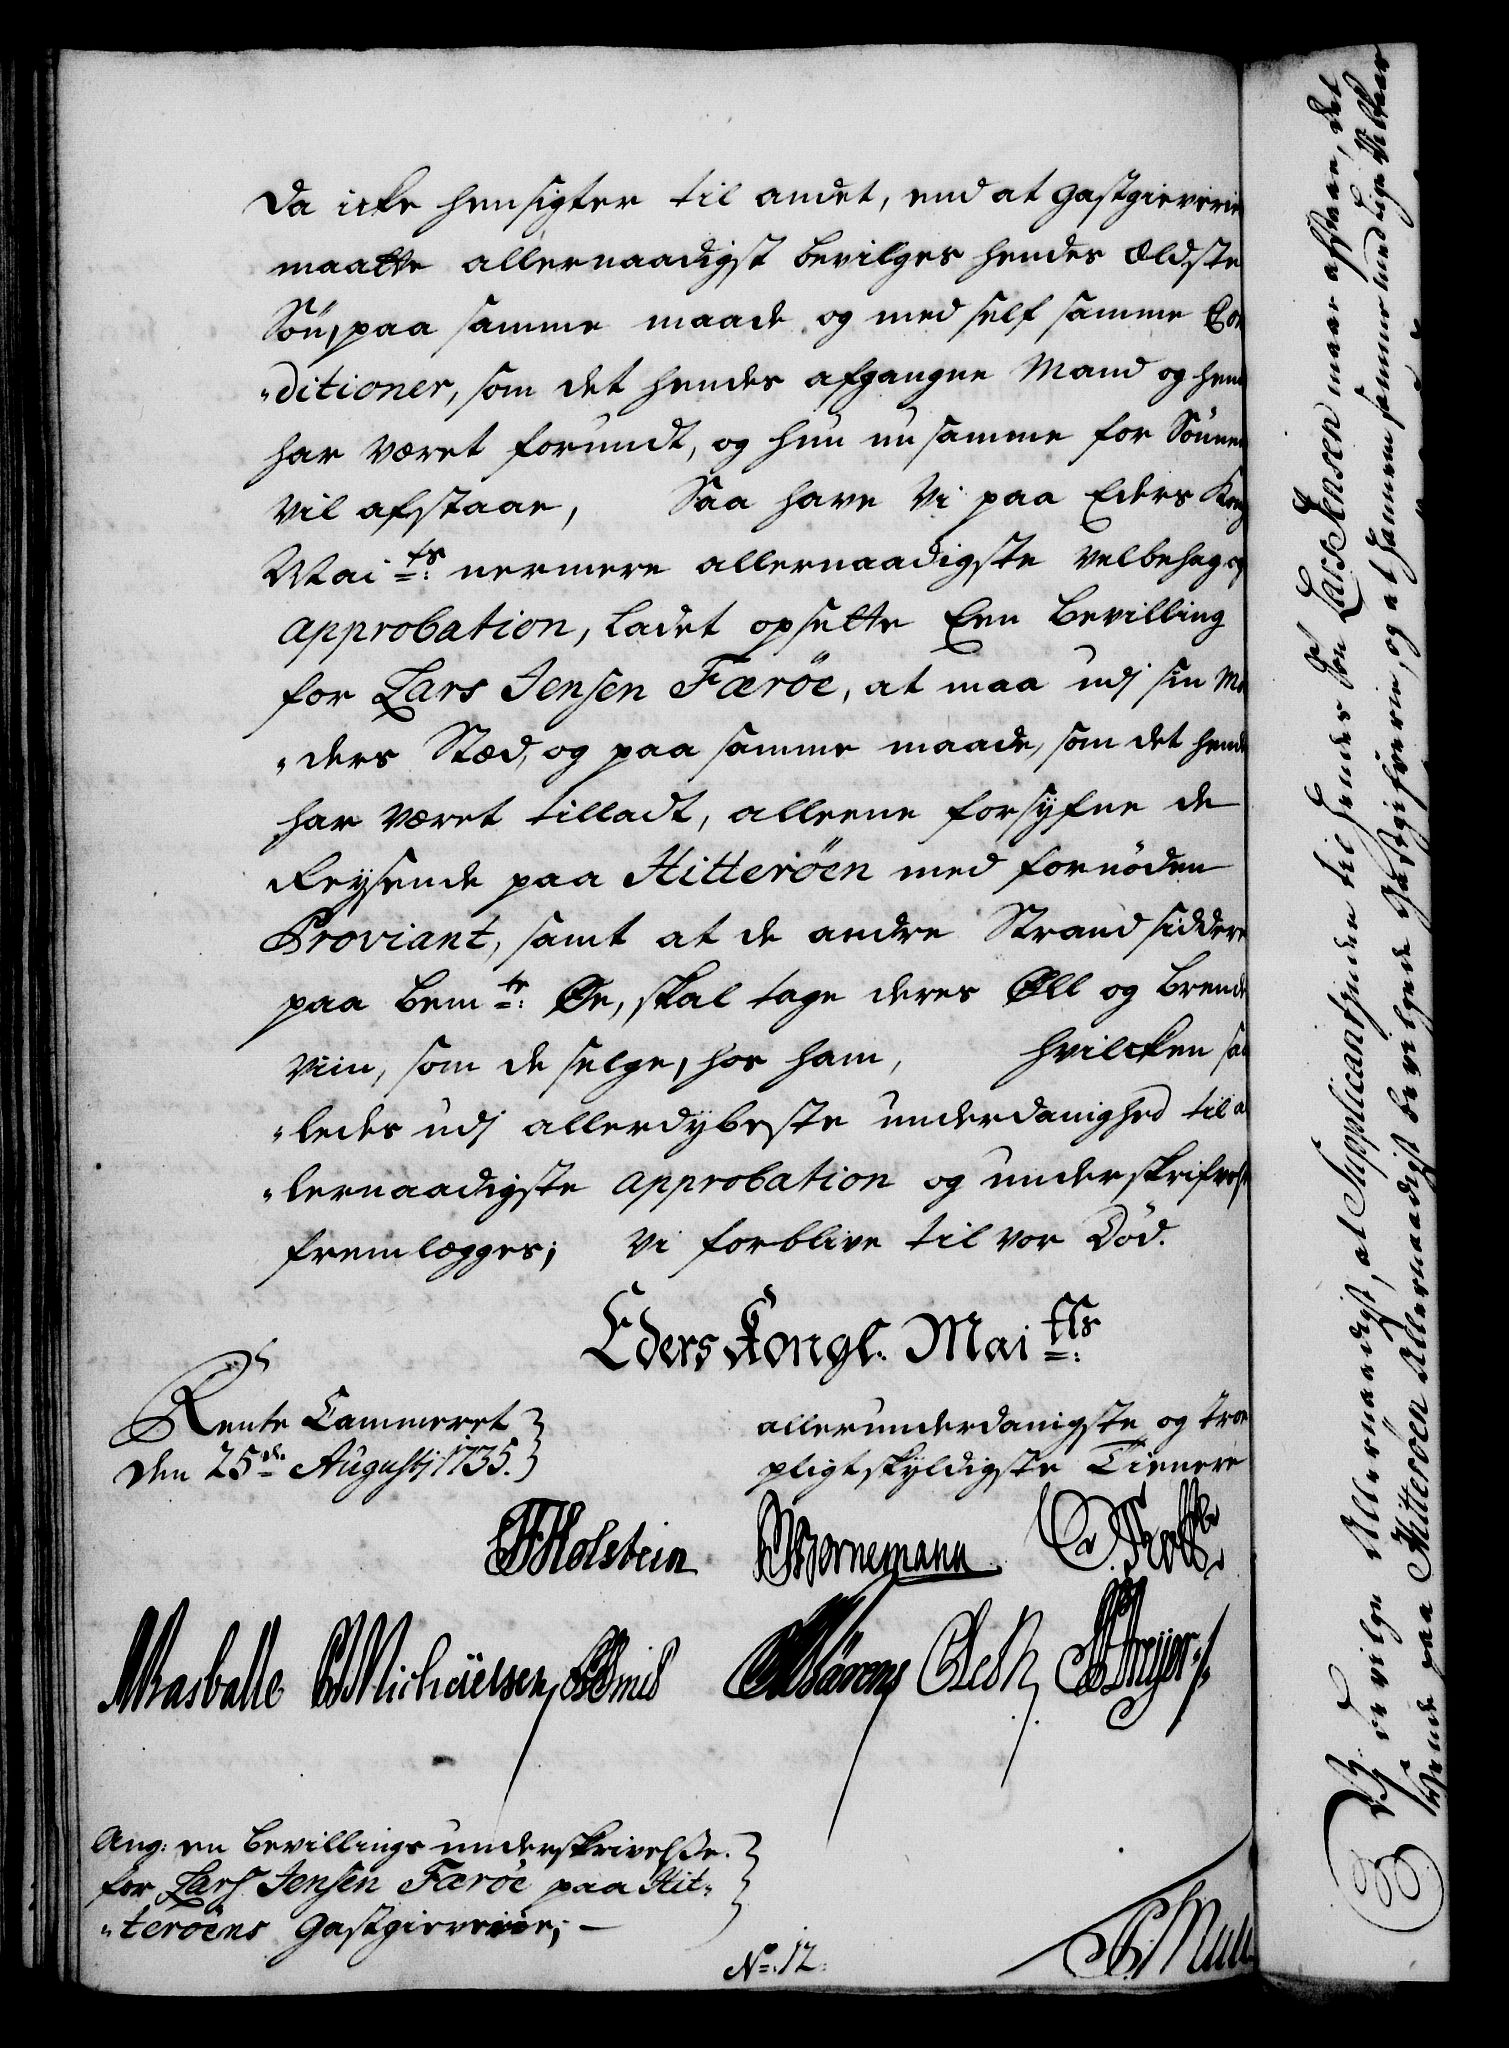 da icke hensigter til andet, end at Gastgieverie
maatte allernaadigst bevilges hendes Ældste
Sön, paa samme maade og med self samme Con
"ditioner, som det hendes afgangne Mand og hen
har været forundt, og hun nu samme for Sönnen
vil afstaae, Saa have Vi paa Eders Kong
Mai ts: nermere allernaadigste velbehag og
approbation, ladet opsette Een bevilling
for Lars Jensen Færöe, at maa udj sin Mo
"ders Stæd, og paa samme maade, som det hende
har været tilladt, alleene forsyfne de
Reysende paa Hitteröen med fornöden
Proviant, samt at de andre Strand siddere
paa bem te: Öe, skal tage deres Öll og brende
viin, som de selge, hos ham, hvilcken saa
"ledes udj allerdybeste underdanighed til al
"lernaadigste approbation og underskrifvelse
fremlegges; Vi forblive til vor Död.
Eders Kongl. Mai tts:
Rente Cammeret
den 25de Augustj 1735.
allerunderdanigste og troe
pligtskyldigste Tienere
Holstein Bornemann
Rasballe Michäelsen Smid
Ang: en bevillings underskrivelsse
for Lars Jensen Færöe paa Hit"
"teröens Gastgieverie; —
No: 12:
Bevilge Allernaadigst, at Supplicantinden til hendes Sön Lars Jensen maae afstaae, det
hende paa Hitteröen Allernaadigst bevilgede Gastgifverie, og at hannem samme med lige Vilkaar